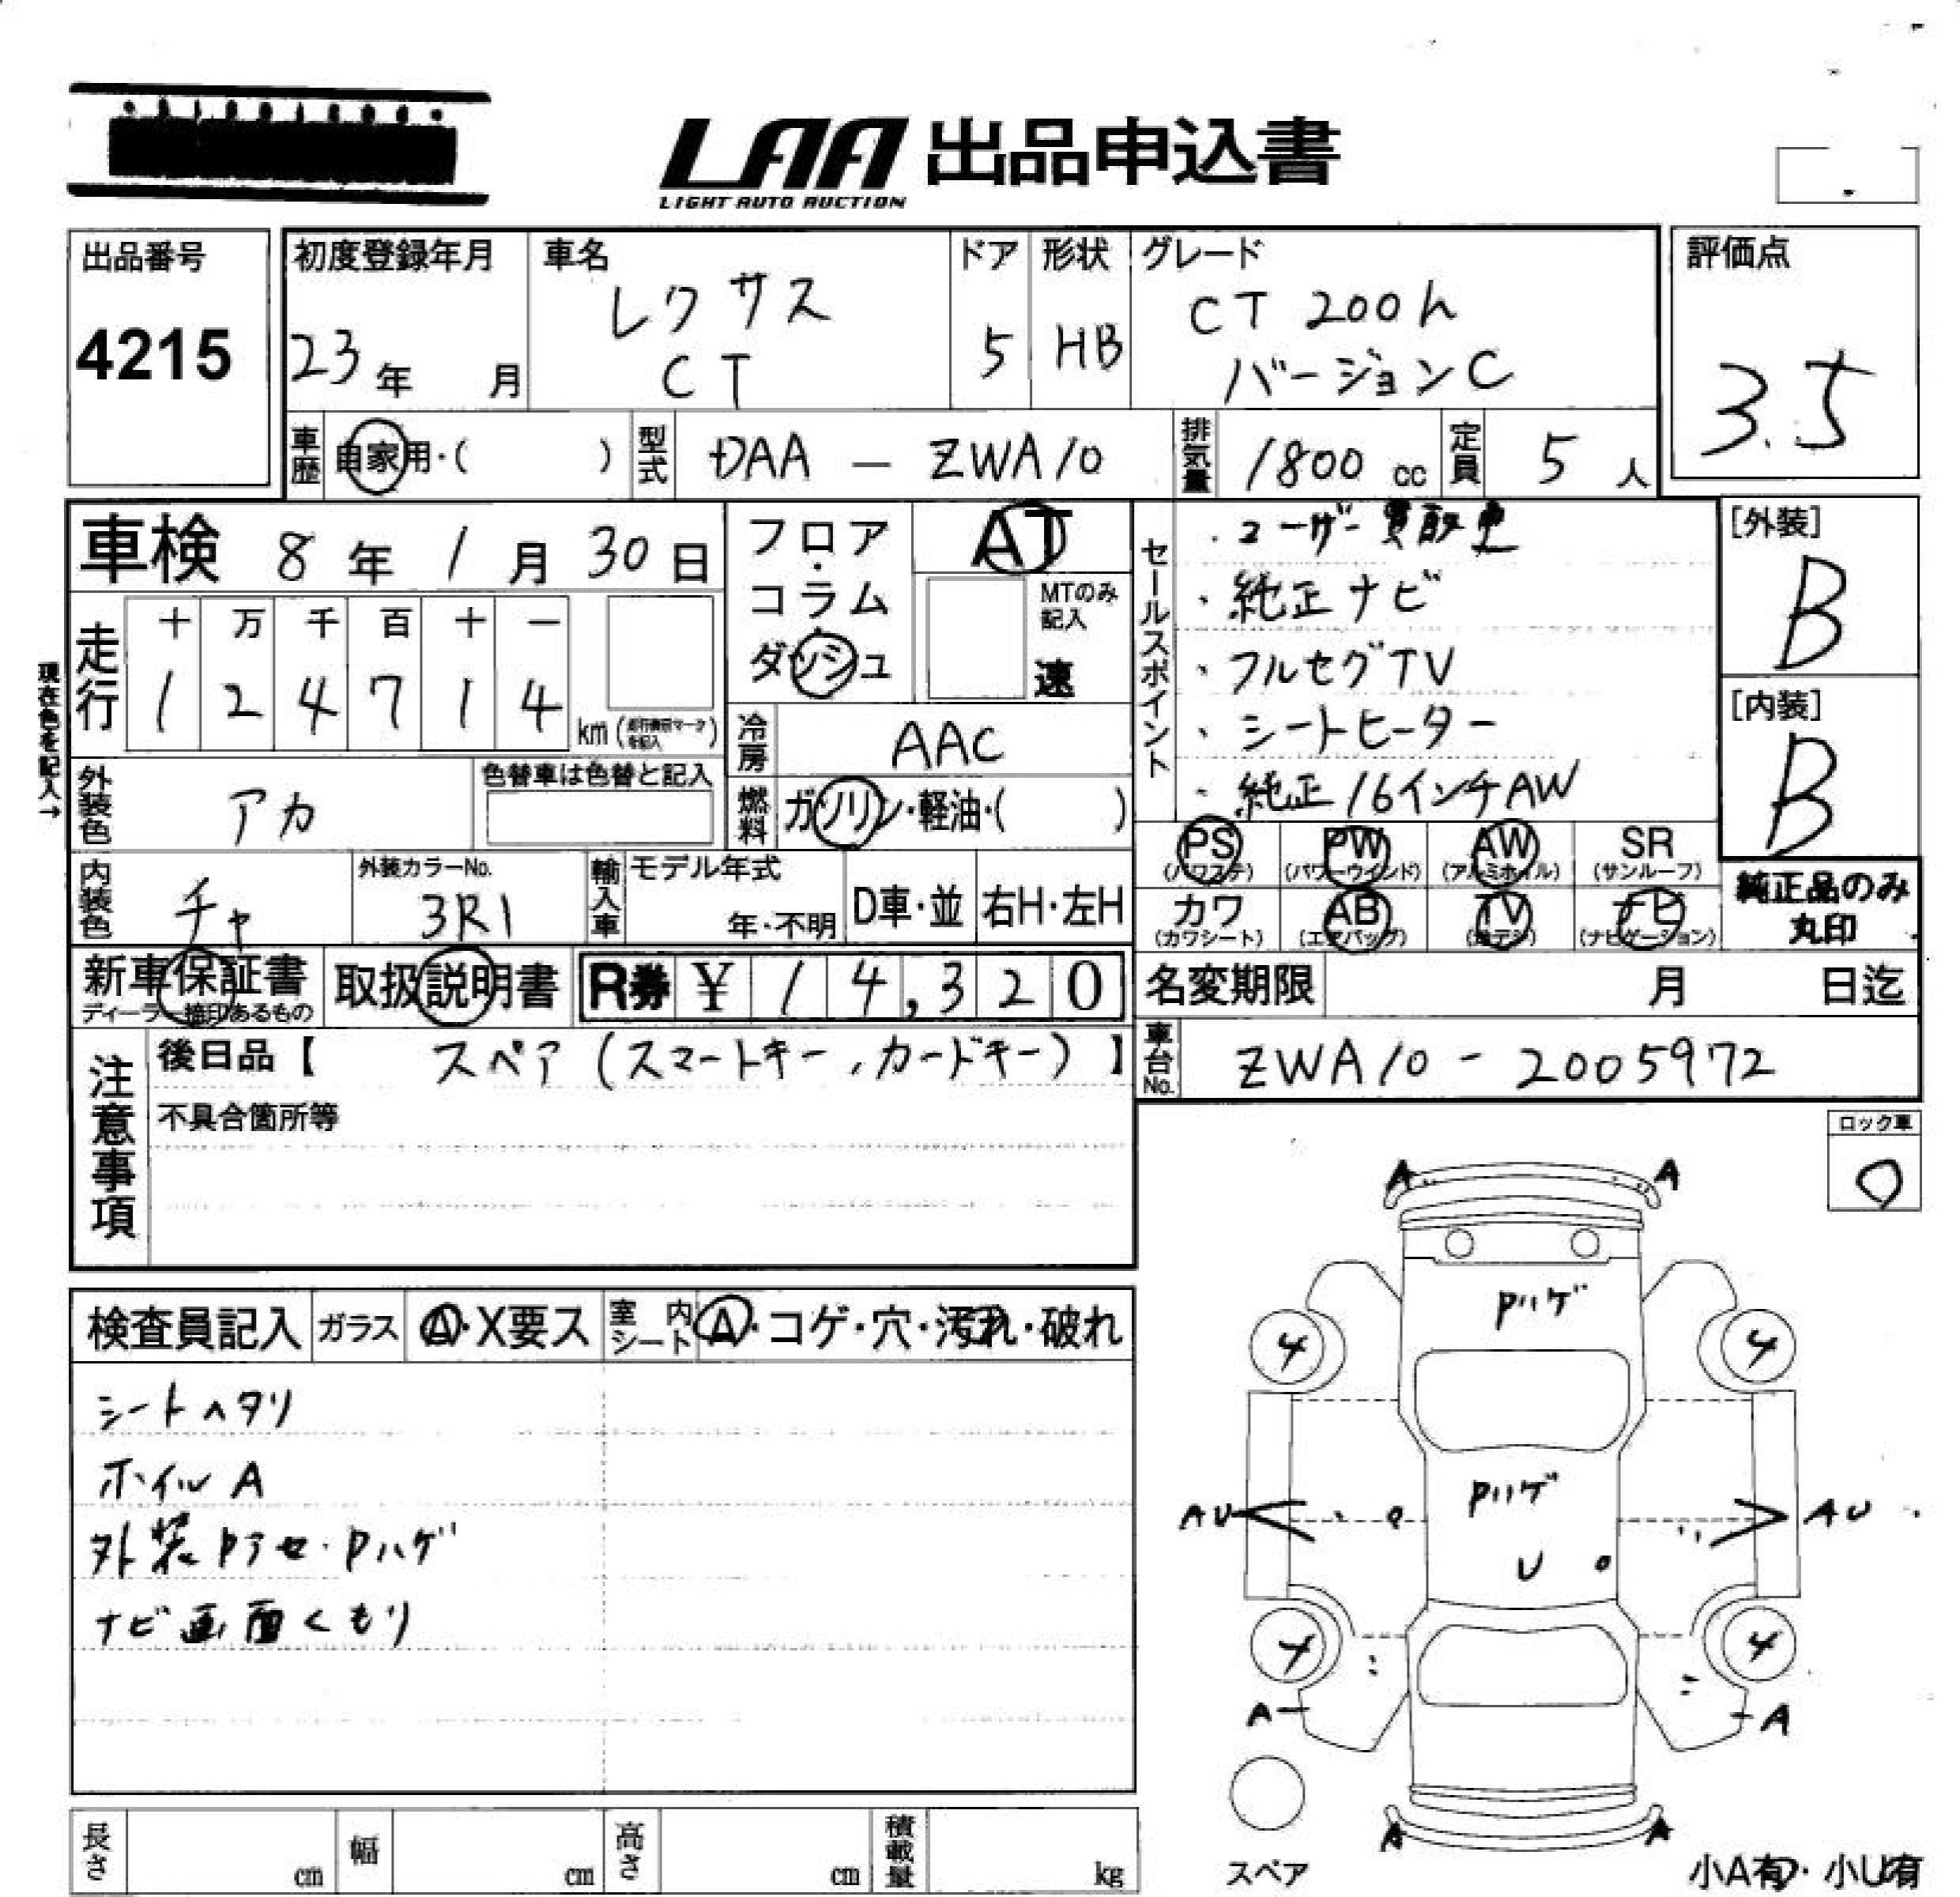 LAA 出品申込書
LIGHT AUTO AUCTION
出品番号
4215
初度登録年月
23年 月
車名
レクサス
CT
ドア
5
形状
HB
グレード
CT 200h
バージョンC
評価点
3.5
車歴 自家用・( )
型式 DAA - ZWA10
排気量 1800 cc
定員 5 人
車検 8年 1月 30日
走行
十 万 千 百 十 一
1 2 4 7 1 4 km
現在色を記入→
フロア・コラム・ダッシュ
AT
MTのみ記入
速
冷房 AAC
燃料 ガソリン・軽油・( )
セールスポイント
・ユーザー買取車
・純正ナビ
・フルセグTV
・シートヒーター
・純正16インチAW
[外装]
B
[内装]
B
外装色 アカ
色替車は色替と記入
内装色 チャ
外装カラーNo.
3R1
輸入車
モデル年式
年・不明
D車・並
右H・左H
PS (パワステ)
PW (パワーウインド)
AW (アルミホイル)
SR (サンルーフ)
カワ (カワシート)
AB (エアバッグ)
TV (地デジ)
ナビ (ナビゲーション)
純正品のみ
丸印
新車保証書
ディーラー捺印あるもの
取扱説明書
R券 ¥ 14,320
名変期限 月 日迄
注意事項
後日品【 スペア(スマートキー、カードキー) 】
不具合箇所等
車台No. ZWA10 - 2005972
ロック車
検査員記入
ガラス Ⓐ・X要ス
室内シート Ⓐ・コゲ・穴・汚れ・破れ
シートヘタリ
ホイルA
外装Pアセ・Pハゲ
ナビ画面くもり
A A
Pハゲ
4 4
Pハゲ
AU AU
U
4 4
A A
A A
スペア
小A有・小U有
長さ cm
幅 cm
高さ cm
積載量 kg